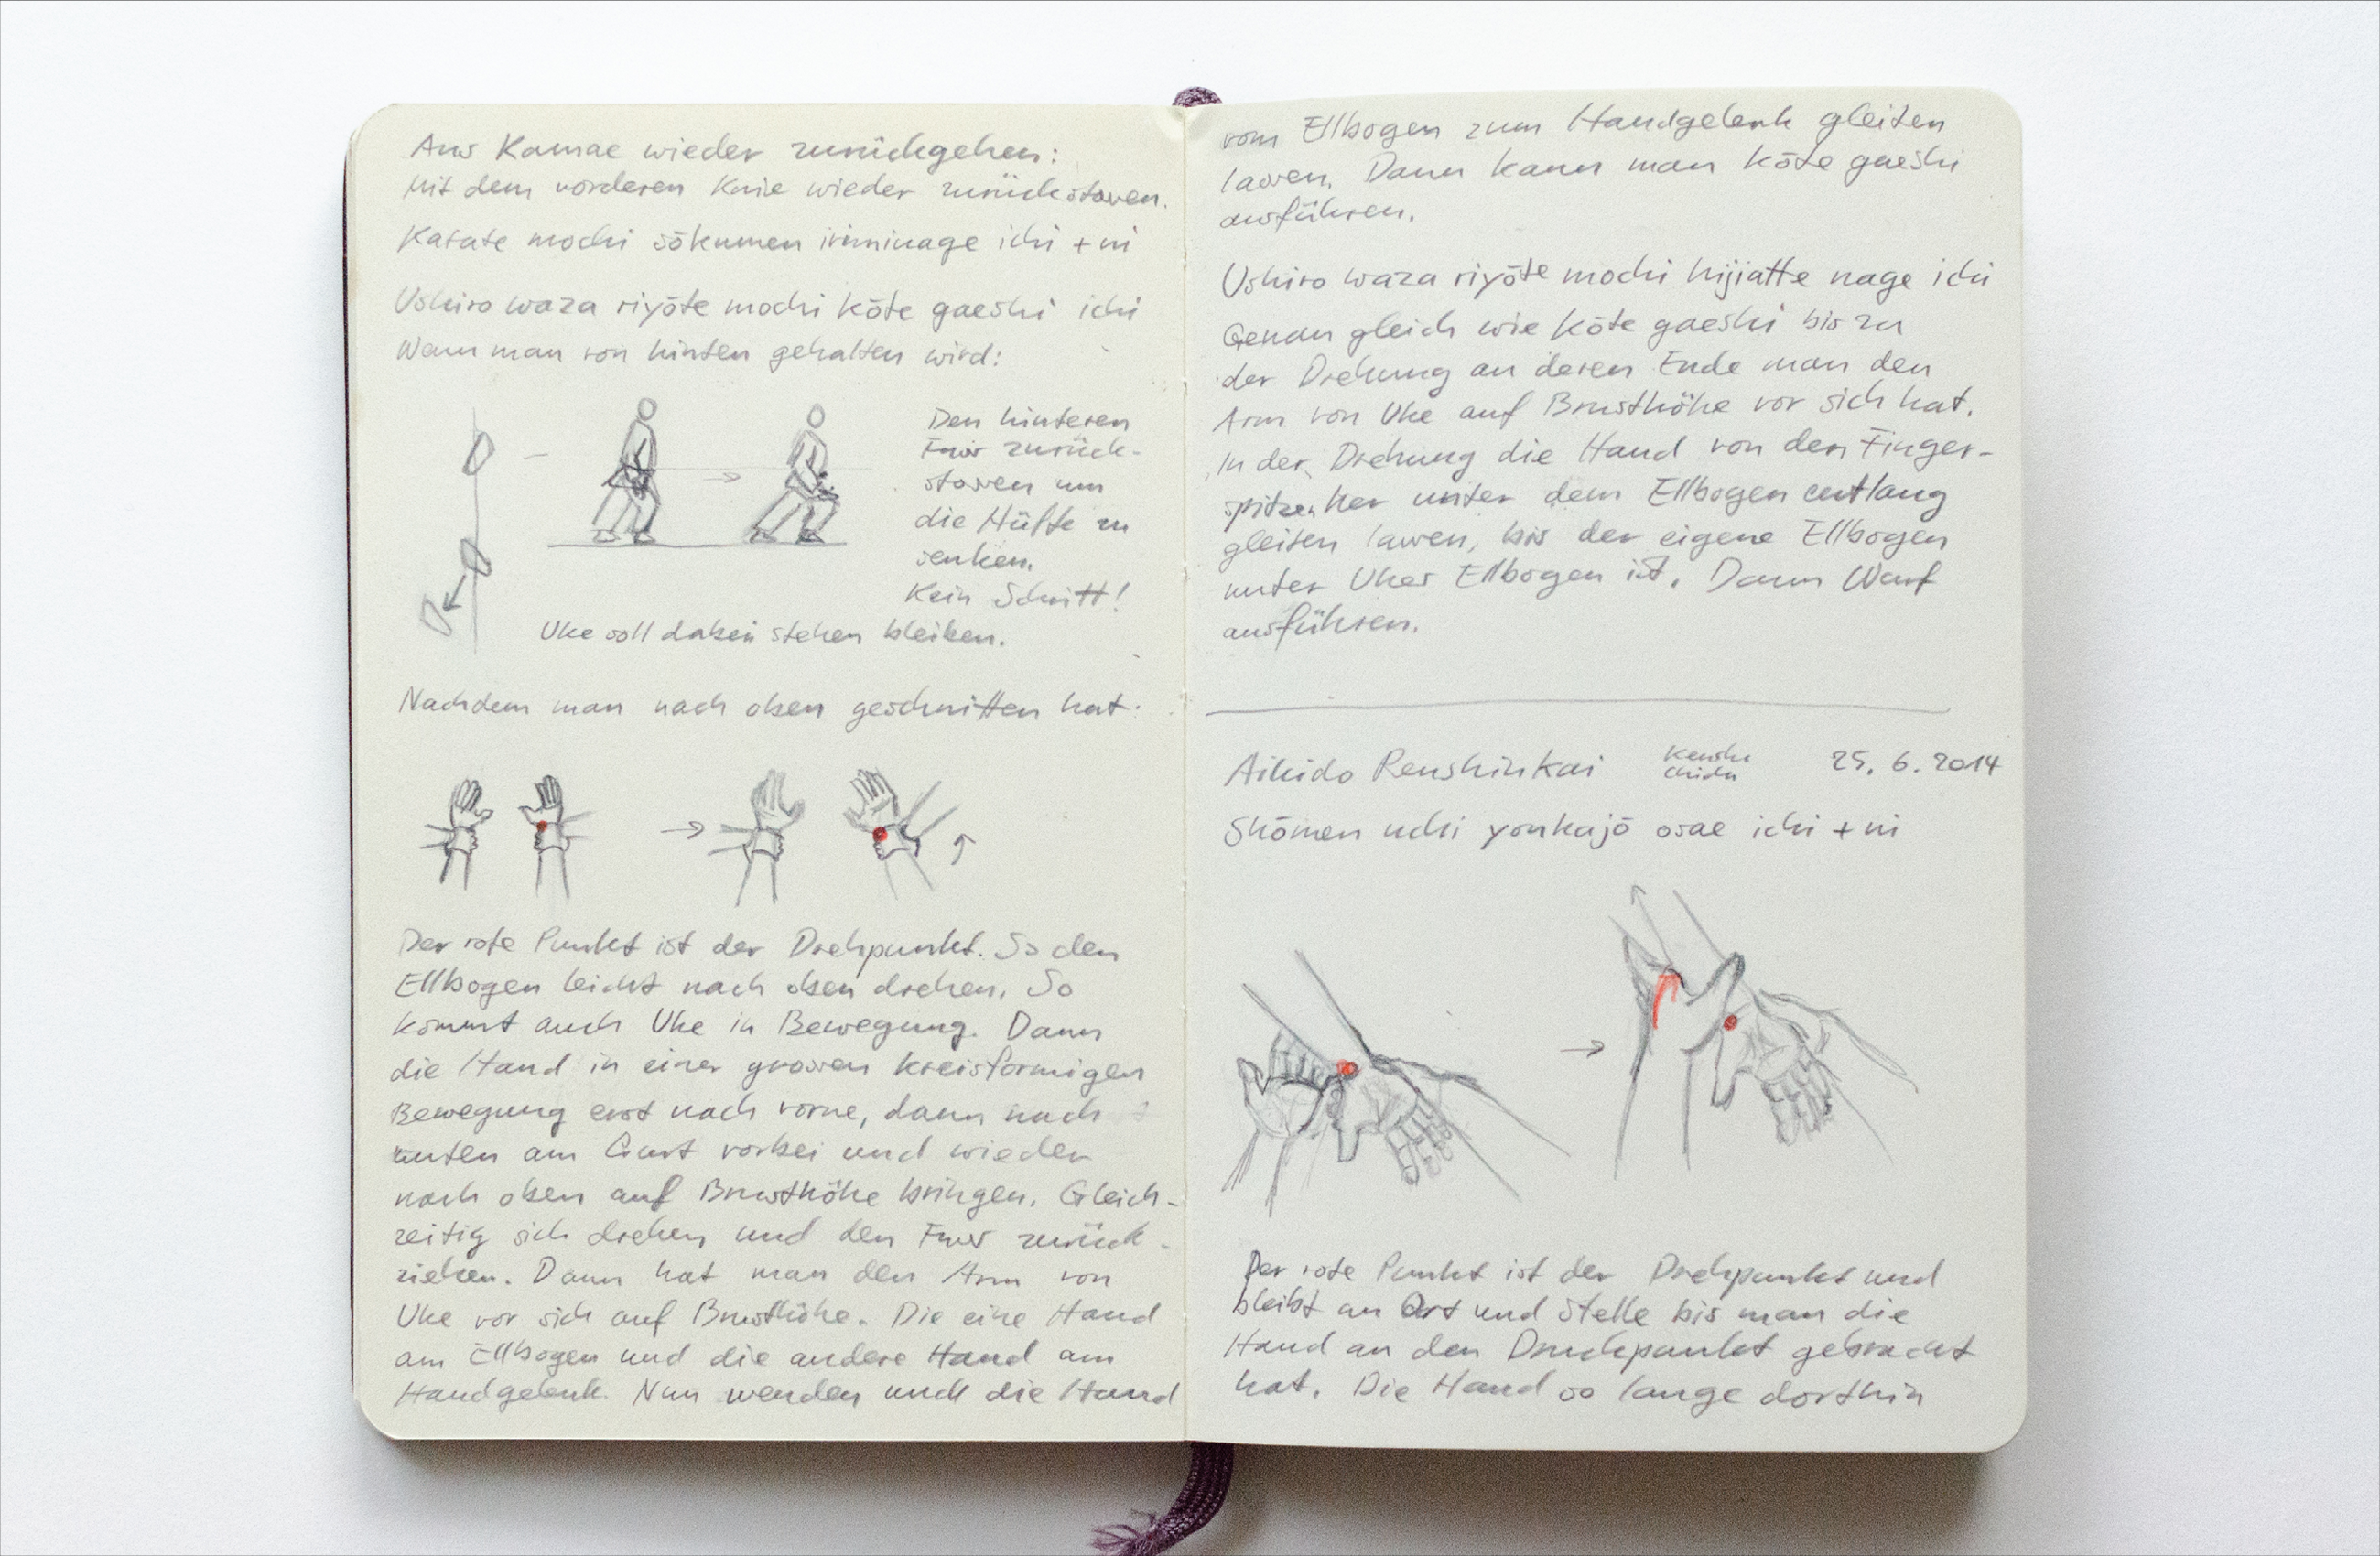 Aus Kamae wieder zurückgehen:
Mit dem vorderen Knie wieder zurückstossen.
Katate mochi sōkumen iriminage ichi + ni
Ushiro waza riyōte mochi kōte gaeshi ichi
Wenn man von hinten gehalten wird:
Den hinteren
Fuss zurück-
stossen um
die Hüfte zu
senken.
Kein Schritt!
Uke soll dabei stehen bleiben.
Nachdem man nach oben geschnitten hat:
Der rote Punkt ist der Drehpunkt. So den
Ellbogen leicht nach oben drehen. So
kommt auch Uke in Bewegung. Dann
die Hand in einer grossen kreisförmigen
Bewegung erst nach vorne, dann nach
unten am Gurt vorbei und wieder
nach oben auf Brusthöhe bringen. Gleich-
zeitig sich drehen und den Fuss zurück-
ziehen. Dann hat man den Arm von
Uke vor sich auf Brusthöhe. Die eine Hand
am Ellbogen und die andere Hand am
Handgelenk. Nun wenden und die Hand
vom Ellbogen zum Handgelenk gleiten
lassen. Dann kann man kōte gaeshi
ausführen.
Ushiro waza riyōte mochi hijiatte nage ichi
Genau gleich wie kōte gaeshi bis zu
der Drehung an deren Ende man den
Arm von Uke auf Brusthöhe vor sich hat.
In der Drehung die Hand von den Finger-
spitzen her unter dem Ellbogen entlang
gleiten lassen, bis der eigene Ellbogen
unter Ukes Ellbogen ist. Dann Wurf
ausführen.
Aikido Renshinkai 25.6.2014
Shōmen uchi yonkajō osae ichi + ni
Der rote Punkt ist der Drehpunkt und
bleibt an Ort und Stelle bis man die
Hand an den Druckpunkt gebracht
hat. Die Hand so lange dorthin